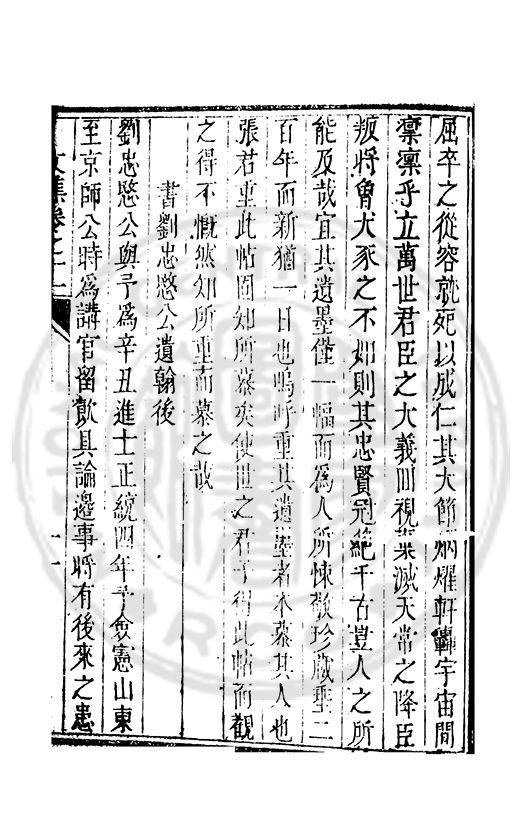 屈卒之從容就死以成仁其大節炳燿軒轟宇宙間
凛凛乎立萬世君臣之大義回視棄滅天常之降臣
叛將曾犬豕之不如則其忠賢冠絶千古豈人之所
能及哉宜其遺墨僅一幅而爲人所悚敬珍藏垂二
百年而新猶一日也嗚呼重其遺墨者本慕其人也
張君重此帖固知所慕矣使世之君子得此帖而觀
之得不慨然知所重而慕之哉
書劉忠愍公遺翰後
劉忠愍公與予爲辛丑進士正統四年予僉憲山東
至京師公時爲講官留飲具論邊事將有後來之患
文集卷之十二